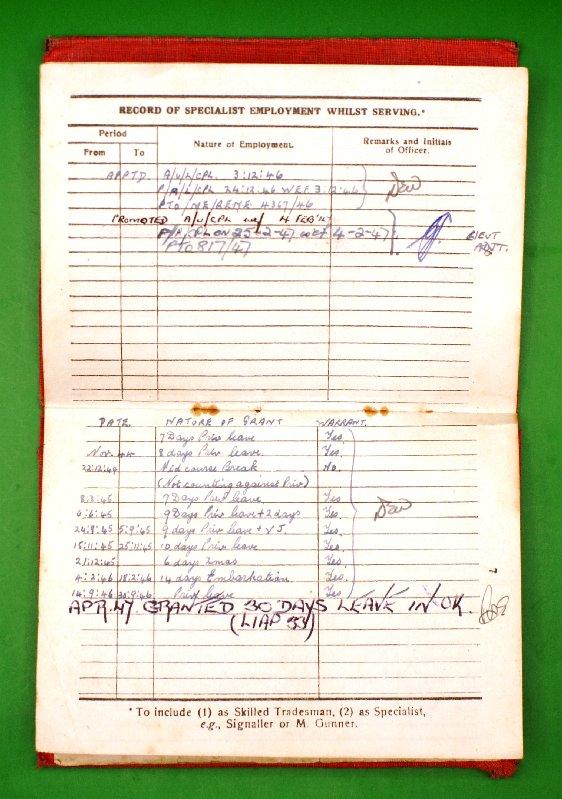 RECORD OF SPECIALIST EMPLOYMENT WHILST SERVING.*
Period
From To Nature of Employment. Remarks and Initials of Officer.
APPTD. A/U/L/CPL. 3:12:46
P/A/L/CPL 24:12.46 WEF 3:12:46
PTO/ME/REME 4367/46
PROMOTED A/U/CPL wef 4 FEB '47
P/A/CPL ON 25-2-47 WEF 4-2-47 LIEUT
PTO 817/47 ADJT.
DATE. NATURE OF GRANT WARRANT.
7 Days Priv leave Yes.
Nov. 44 8 days Priv leave. Yes.
22:12:44 Mid course Break No.
(Not counting against Priv)
8:3:45 7 Days Priv leave Yes
6:6:45 9 Days Priv leave + 2 days Yes.
24:8:45 5:9:45 9 days Priv leave + VJ. Yes.
15:11:45 25:11:45 10 days Priv leave Yes.
21:12:45 6 days Xmas Yes.
4:2:46 18:2:46 14 days Embarkation. Yes.
14:9:46 30:9:46 Priv leave Yes
APR 47 GRANTED 30 DAYS LEAVE IN UK.
(LIAP 33)
*To include (1) as Skilled Tradesman, (2) as Specialist,
e.g., Signaller or M. Gunner.